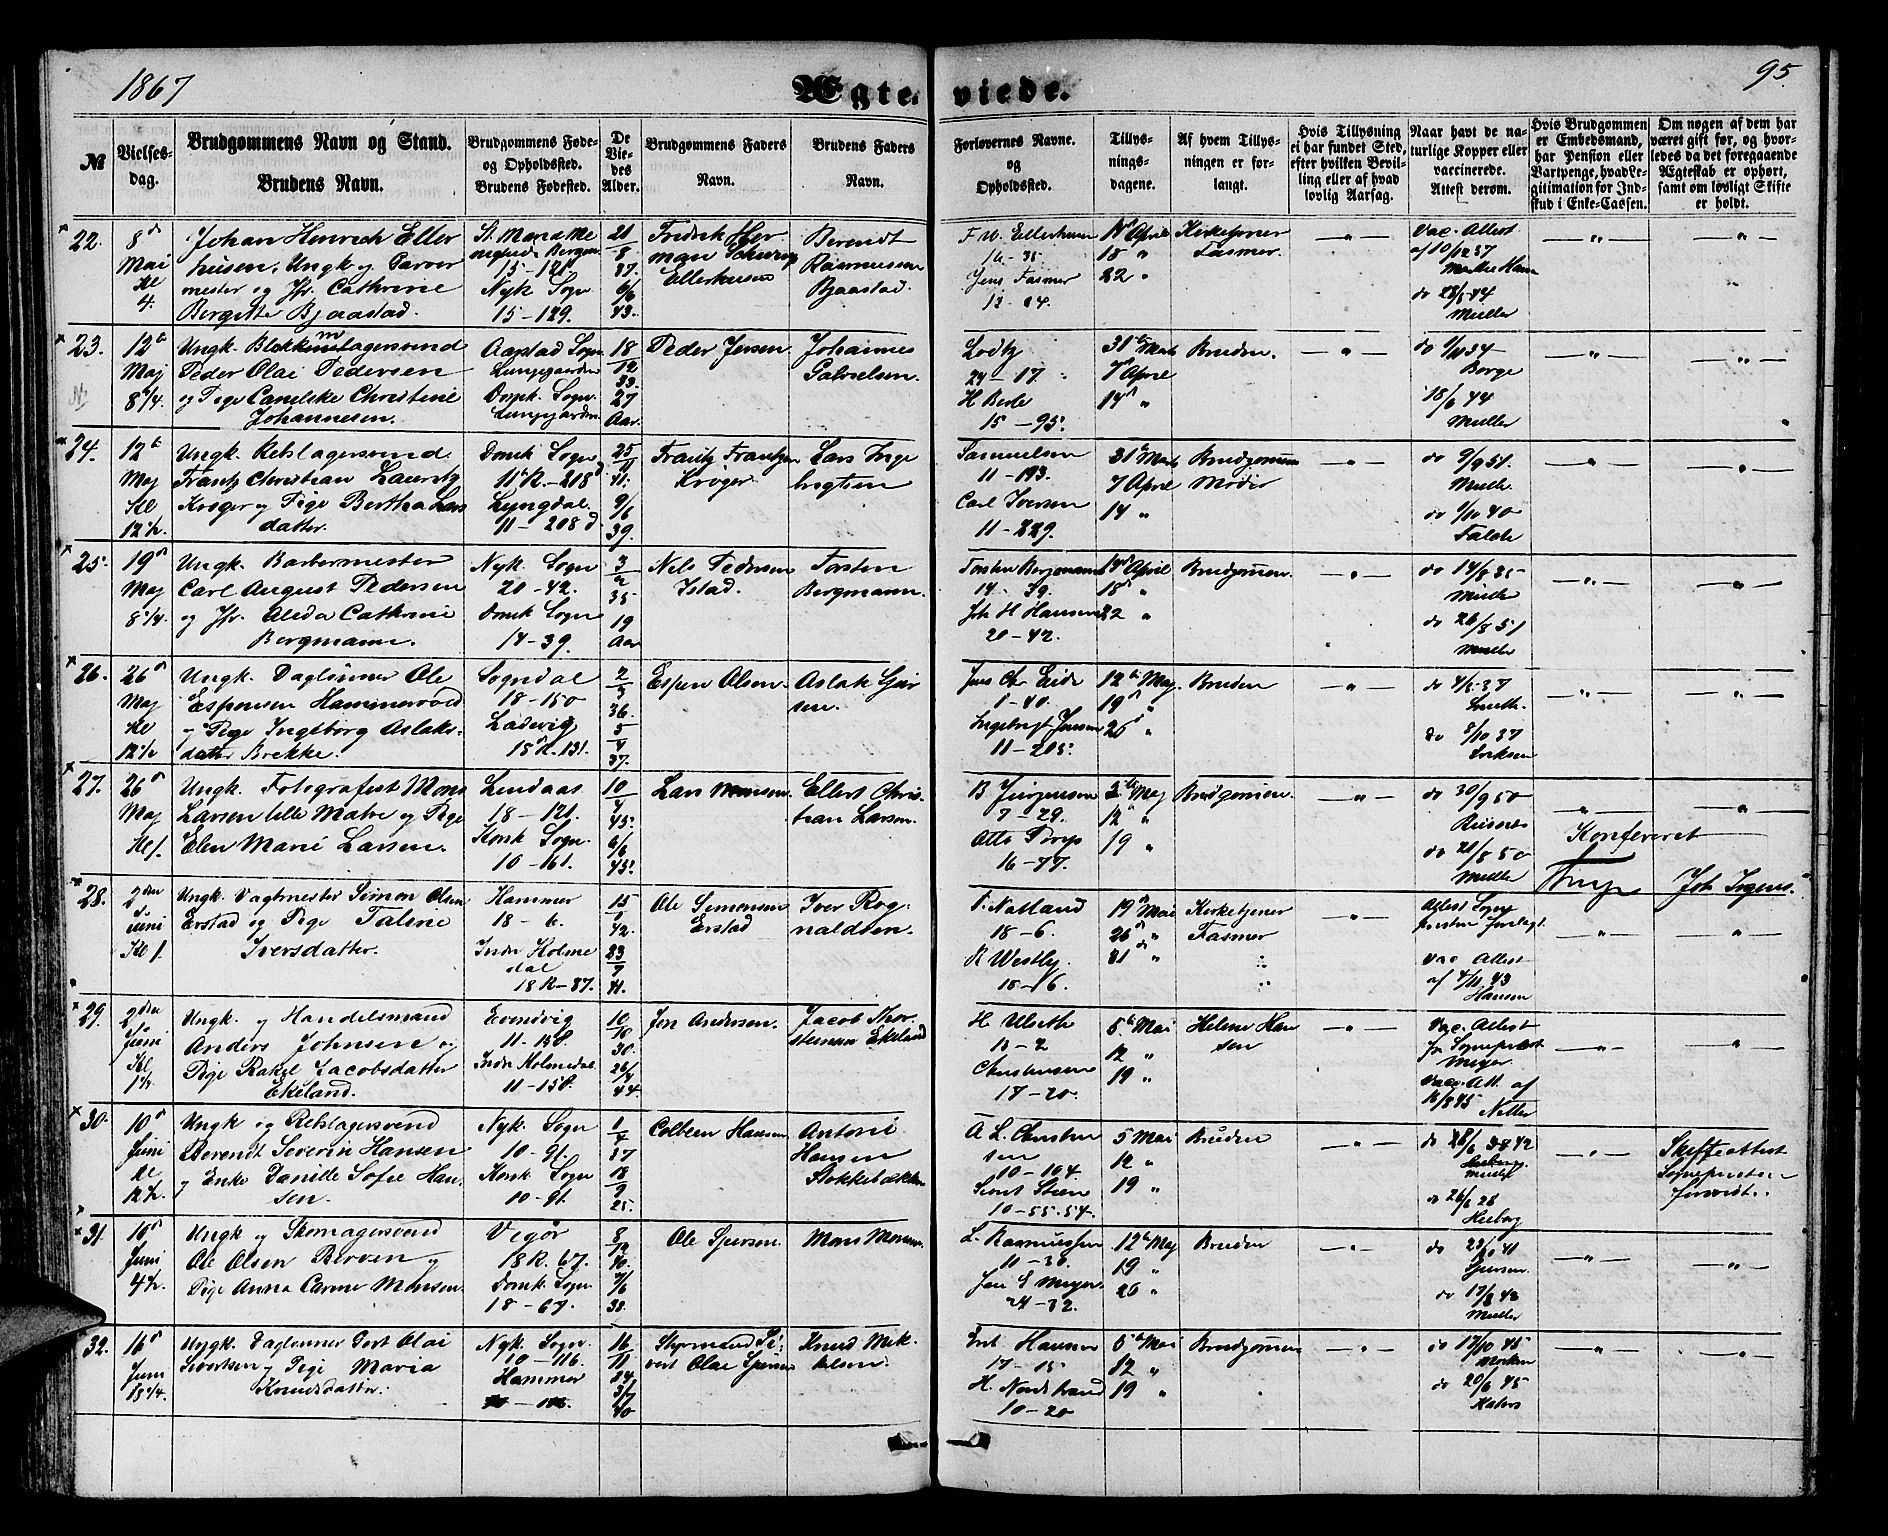 1867
Ægte-viede.
95.
№
Vielses-dag.
Brudgommens Navn og Stand.
Brudens Navn.
Brudgommens Føde-
og Opholdsted.
Brudens Fødested.
De
Vie-
des
Alder.
Brudgommens Faders
Navn.
Brudens Faders
Navn.
Forlovernes Navne.
og
Opholdsted.
Tillys-
nings-
dagene.
Af hvem Tillys-
ningen er for-
langt.
Hvis Tillysning
ei har fundet Sted,
efter hvilken Bevil-
ling eller af hvad
lovlig Aarsag.
Naar havt de na-
turlige Kopper eller
vaccinerede.
Attest derom.
Hvis Brudgommen
er Embedsmand,
har Pension eller
Vartpenge, hvad Le-
gitimation for Ind-
skud i Enke-Cassen.
Om nogen af dem har
været gift før, og hvor-
ledes da det foregaaende
Ægteskab er ophørt,
samt om lovligt Skifte
er holdt.
22.
8d
Mai
Kl
4.
Johan Henrich Eller
husen, Ungk og Farver
mester og Jfr. Cathrine
Bergitte Bjaastad.
15 - 121.
Nyk Sogn
15 - 129.
21
8
37.
6/6
43.
Fredrik Her
man
Ellerhusen
Berendt
Rasmussen
Bjaastad.
F W. Ellerhusen
Jens Fasmer
April
18 "
22 "
Kirketjener
Fasmer.
Vac. Attest
Muller
23.
12te
Maj
8 1/4.
Ungk. Blokkmagersvend
Peder Olai Pedersen
og Pige Canelske Christine
Johannesen.
Aarstad Sogn
Lungegarden
Domk. Sogn
Lungegarden
18
12
33.
27
Aar.
Peder Jensen.
Johannes
Gabrielsen.
24 - 17.
15 - 95.
31te Marts
7d April
14d "
Bruden.
do 9/11 34
Borge
18/6 44
Muller
24.
12te
Maj
Kl
12 1/2.
Ungk. Rebslagersvend
Frantz Christian Laurentz
Krøger og Pige Bertha Lars
datter.
Domk Sogn
11 R. - 218d
Lyngdal
11 - 208 d.
25
11
41.
9/6
39.
Frantz Frantzen
Krøger
Lars Inge
brigtsen
Samuelsen
11 - 193.
Carl Iversen
11 - 229.
31te Marts
7 April
14 "
Brudgommens
Moder
do 9/9 51.
Muller
do 1/10 40
Falch
25.
19d
Maj
8 1/4.
Ungk. Barbermester
Carl August Pedersen
og Jfr. Aleda Cathrine
Bergmann.
Nyk. Sogn
20 - 42.
Domk Sogn
14 - 39.
3
2
35
19
Aar
Nils Pedersen
Istad.
Torsten
Bergmann.
Torsten Bergmann
14 - 39.
Joh H Hansen
20 - 42.
14d April
18d "
22 "
Brudgommen.
do 14/8 35
Muller
do 26/8 51
Muller
26.
26d
Maj
Kl
12 1/2
Ungk. Daglønner Ole
Espensen Hammervold
og Pige Ingeborg Aslaks-
datter Brekke.
Sogndal
18 - 150
Ladevig
15 R. 131.
2
3
36.
5
4
37.
Espen Olsen.
Aslak Geir
sen.
Jens Chr Eide
1 - 40.
Ingebrigt Jensen
11 - 205.
12te Maj.
19d "
26d "
Bruden
do 4/8 37
do 3/10 37
Eriksen
27.
26d
Maj
Kl 1.
Ungk. Fotografist Mons
Larsen lille Matre og Pige
Elen Marie Larsen.
Lindaas
18 - 121.
Korsk Sogn.
10 - 161.
10
4
45.
6/6
45.
Lars Monsen.
Ellert Chris-
tian Larsen.
B Jørgensen
7 - 29.
Otto
16 - 77.
5te Maj
12 "
19 "
Brudgommen.
do 30/9 50
do 21/8 50
Muller
Konfereret
Joh Irgens.
28.
2den
Juni
Kl 1.
Ungk. Vagtmester Simon Olsen
Erstad og Pige Taline
Iversdatter.
Hammer
18 - 6.
Indre Holme
dal
18 R - 87.
15
1
42.
23
7
41.
Ole Simonsen
Erstad
Iver Rog-
naldsen.
T. Natland
18 - 6.
R Westby.
15 - 16.
19d Mai
26d "
31d "
Kirketjener
Fasmer
Attest Sogne
Vac Attest
af 4/11 43
Hansen
29.
2den
Juni
Kl
1 1/2.
Ungk. og Handelsmand
Anders Johnsen og
Pige Rakel Jacobsdatter
Ekeland.
Evendvig
11 - 158
Indre Holmedal
11 - 158.
10
10
30.
26/4
44.
Jon Andersen.
Jacob Thor
steinsen Ekeland
H. Ulseth
15 - 2
Christensen
17 - 20.
5te Mai
12 "
19 "
Helene Han
sen
Vac. Attest
fr Sogneprest
Meyer
Vacc. Att. af
Natler
30.
10d
Juni
Kl
12 1/2.
Ungk og Rebslagersvend
Berendt Severin Hansen
og Enke Danille Sofie Han-
sen.
Nyk. Sogn
10 - 91.
Korsk Sogn
10 - 91.
1
4
37
18
9
25.
Colbein Hansen
Antoni
Hansen
Stokkebækken
A L. Christen
sen
10 - 104.
Sivert Steen
10 - 55-54.
5 Mai
12 "
19 "
Bruden
Muller
do 26/6 28
Heiberg
Skifteattest
Sognepresten
forevist.
31.
10d
Juni
4 1/2.
Ungk og Skomagersvend
Ole Olsen Berven og
Pige Anna Carine Monsen.
Vigør
18 R. 67.
Domk. Sogn
18 - 67.
8
12
40.
7/6
38.
Ole Iversen.
Mons Monsen.
L. Rasmussen
11 - 30.
Jens E Meyer.
24 - 32.
12te Maj
19 "
26 "
Bruden
do 17/8 42
Muller
32.
16d
Juni
Ungk. Daglønner Gert Olai
Sivertsen og Pige Maria
Knudsdatter.
Nyk. Sogn
10 - 116.
Hammer
16
11
44
3/7
40
Styrmand Si-
vert Olai Iversen
Knud Mik-
kelsen.
Hansen
17 - 15.
H. Nordstrand
10 - 20
5te Mai
12 "
19 "
Brudgommen
do 17/10 45
Morken
do 20/6 45